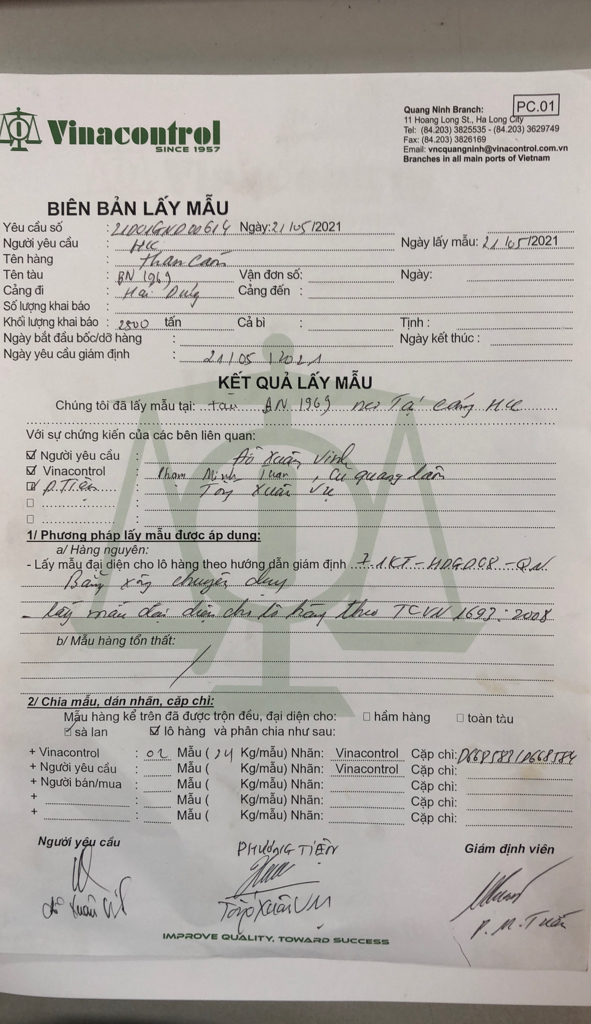 Vinacontrol
SINCE 1957
PC.01
Quang Ninh Branch:
11 Hoang Long St., Ha Long City
Tel: (84.203) 3825535 - (84.203) 3629749
Fax: (84.203) 3826169
Email: vncquangninh@vinacontrol.com.vn
Branches in all main ports of Vietnam
BIÊN BẢN LẤY MẪU
Yêu cầu số : Ngày: 21/05/2021
Người yêu cầu : Ngày lấy mẫu: 21/05/2021
Tên hàng : than cám
Tên tàu : BN 1969 Vận đơn số: Ngày:
Cảng đi : Cảng đến :
Số lượng khai báo :
Khối lượng khai báo : 2800 tấn Cả bì : Tịnh :
Ngày bắt đầu bốc/dỡ hàng : Ngày kết thúc :
Ngày yêu cầu giám định : 21/05/2021
KẾT QUẢ LẤY MẪU
Chúng tôi đã lấy mẫu tại: tàu BN 1969
Với sự chứng kiến của các bên liên quan:
Người yêu cầu : Đỗ Xuân Vinh
Vinacontrol : Phạm Minh Tuấn, Cù Quang Lâm
P. Tiện : Xuân
1/ Phương pháp lấy mẫu được áp dụng:
a/ Hàng nguyên:
- Lấy mẫu đại diện cho lô hàng theo hướng dẫn giám định 7.1KT-HDGD08-QN.
Bằng chuyên dụng
- Lấy mẫu đại diện cho lô hàng theo TCVN 1693:2008
b/ Mẫu hàng tổn thất:
2/ Chia mẫu, dán nhãn, cặp chì:
Mẫu hàng kể trên đã được trộn đều, đại diện cho: hầm hàng toàn tàu
sà lan lô hàng và phân chia như sau:
+ Vinacontrol : 02 Mẫu ( 24 Kg/mẫu) Nhãn: Vinacontrol Cặp chì:
+ Người yêu cầu : Mẫu ( Kg/mẫu) Nhãn: Vinacontrol Cặp chì:
+ Người bán/mua : Mẫu ( Kg/mẫu) Nhãn: Cặp chì:
+ : Mẫu ( Kg/mẫu) Nhãn: Cặp chì:
+ : Mẫu ( Kg/mẫu) Nhãn: Cặp chì:
Người yêu cầu PHƯƠNG TIỆN Giám định viên
P. M. Tuấn
IMPROVE QUALITY, TOWARD SUCCESS